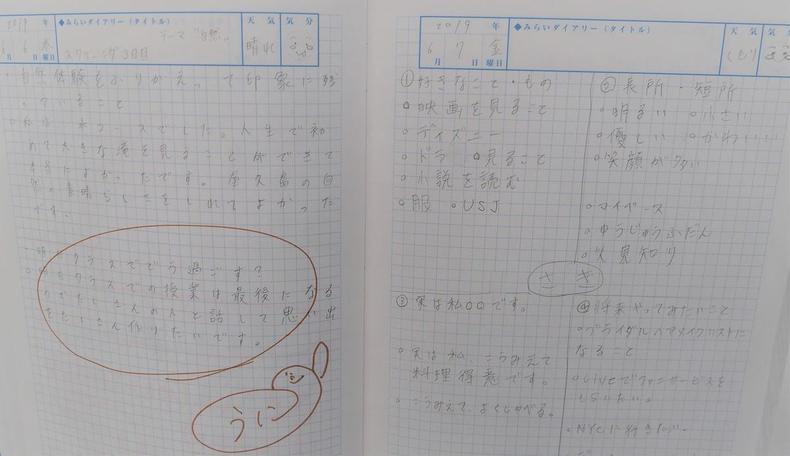 2019 年
◆みらいダイアリー(タイトル)
天 気
気 分
6 6 木 曜日
スクーリング3日目
テーマ "自然"。
晴れ
体験をふりかえって印象に残
っていること
でした。人生で初
めて大きな滝を見ることができて
本当によかったです。屋久島の自
です。
クラスでどう過ごす?
クラスでの授業は最後になる
のでたくさんの人と話して思い出
をたくさん作りたいです。
うに
2019 年
◆みらいダイアリー(タイトル)
天 気
気 分
6 7 金 曜日
くもり
①好きなこと・もの
○映画を見ること
○ディズニー
○ドラマ見ること
○小説を読む
○服 ○USJ
②長所・短所
○明るい ○小さい
○優しい ○かわいい
○笑顔が多い
○マイペース
○ゆうじゅうふだん
○人見知り
さき
③実は私○○です。
○実は私、こうみえて
料理得意です。
○こうみえて、よくしゃべる。
④将来やってみたいこと
○ブライダルヘアメイクリストに
なること
○LIVEでファンサービスを
もらいたい。
○NYCに行きたい